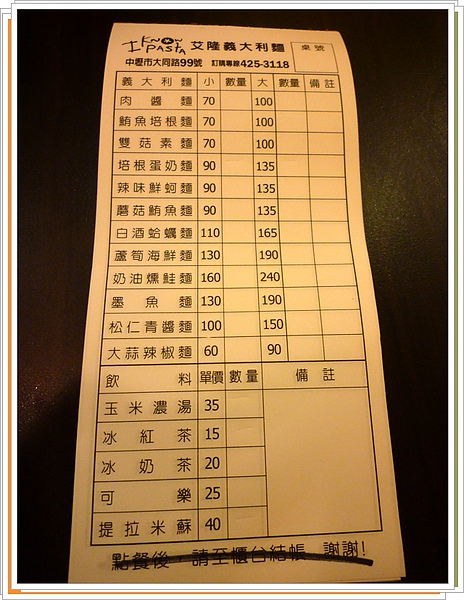 I KNOW PASTA 艾隆義大利麵 桌號
中壢市大同路99號 訂購專線425-3118
義大利麵 小 數量 大 數量 備註
肉醬麵 70 100
鮪魚培根麵 70 100
雙菇素麵 70 100
培根蛋奶麵 90 135
辣味鮮蚵麵 90 135
蘑菇鮪魚麵 90 135
白酒蛤蠣麵 110 165
蘆筍海鮮麵 130 190
奶油燻鮭麵 160 240
墨魚麵 130 190
松仁青醬麵 100 150
大蒜辣椒麵 60 90
飲料 單價 數量 備註
玉米濃湯 35
冰紅茶 15
冰奶茶 20
可樂 25
提拉米蘇 40
點餐後，請至櫃台結帳 謝謝!